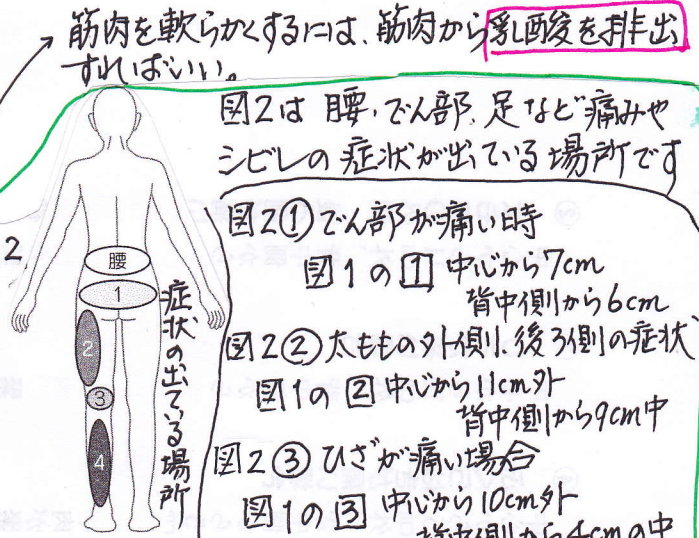 筋肉を軟らかくするには、筋肉から乳酸を排出
すればいい。
図2は 腰、でん部、足など痛みや
シビレの症状が出ている場所です
2.
腰
1
2
3
4
症状の出ている場所
図2①でん部が痛い時
図1の1 中心から7cm
背中側から6cm
図2②太ももの外側、後ろ側の症状
図1の2 中心から11cm外
背中側から9cm中
図2③ひざが痛い場合
図1の3 中心から10cm外
背中側から4cmの中